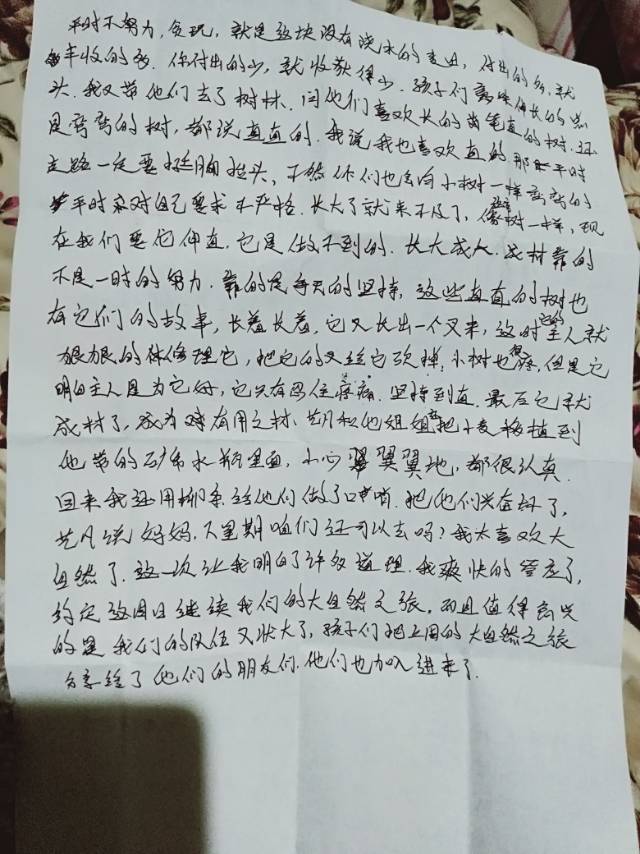 平时不努力,贪玩,就是这块没有浇水的麦田,付出的多,就
丰收的多.你付出的少,就收获得少.孩子们
头.我又带他们去了树林.问他们喜欢长的笔直的树.还
是弯弯的树,都说直直的.我说我也喜欢直的那平时
走路一定要挺胸抬头,不然你们也会向小树一样弯弯的
平时来对自己要求不严格.长大了就来不及了,像树一样,现
在我们要它伸直,它是做不到的.长大成人.成材靠的
不是一时的努力.靠的是每天的坚持,这些直直的树也
有它们的故事,长着长着,它又长出一个叉来,这时它的主人就
狠狠的体修理它,把它的叉给它砍掉,小树也很疼,但是它
明白主人是为它好,它只有忍住疼痛.坚持到直.最后它就
成材了,成为有用之材.艺凡和他姐姐把小麦移植到
他带的矿泉水瓶里面,小心翼翼地,都很认真.
回来我还用柳条给他们做了口哨.把他们兴奋坏了,
艺凡说好妈,下星期咱们还可以去吗?我太喜欢大
自然了.这一次让我明白了许多道理.我爽快的答应了,
约定这周日继续我们的大自然之旅,而且值得高兴
的是我们的队伍又壮大了,孩子们把上周的大自然之旅
分享给了他们的朋友们.他们也加入进来了.